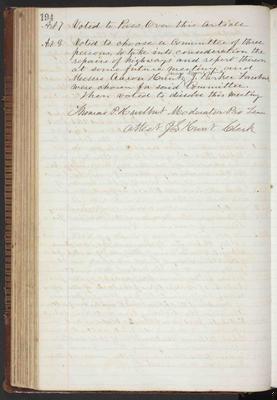 194
Art 7 Voted to Pass Over this Article
Art 8 Voted to choose a Committee of three
persons, to take into consideration the
repairs of highways and report thereon
at some future meeting and
Messrs Aaron Hunt, J. Parker
were chosen for said Committee
Then voted to disolve this meeting
Thomas P. Hurlbut Moderator Pro Tem
Attest Hunt Clerk